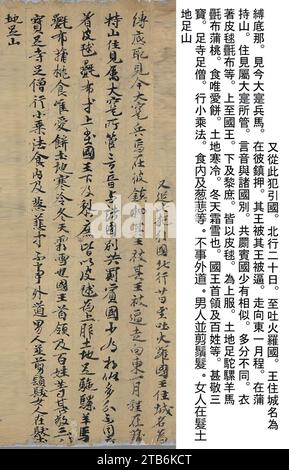 又從此犯引國。北行二十日。至吐火羅國。王住城名為
縛底那。見今大寔兵馬。在彼鎮押。其王被其王被逼。走向東一月程。在蒲
持山。住見屬大寔所管。言音與諸國別。共罽賓國少有相似。多分不同。衣
著皮毬氎布等。上至國王。下及黎庶。皆以皮毬。為上服。土地足駝騾羊馬
氎布蒲桃。食唯愛餅。土地寒冷。冬天霜雪也。國王首領及百姓等。甚敬三
寶。足寺足僧。行小乘法。食内及葱韮等。不事外道。男人並剪鬚髮。女人在髮土
地足山
又從此犯引國北行廿日至吐火羅國王住城名為
縛底耶見今大寔兵馬在彼鎮押其王被其王被逼走向東一月程在蒲
特山住見屬大寔所管言音与諸國別共罽賓國少有相似多分不同衣
著皮毬氎布等上至國王下及黎庶皆以皮毬為上服土地足駝騾羊馬
氎布蒲桃食唯愛餅土地寒冷冬天霜雪也國王首領及百姓等甚敬三
寶足寺足僧行小乘法食肉及葱韮等不事外道男人並剪鬚髮女人在髮
土地足山
alamy
2T86KCT